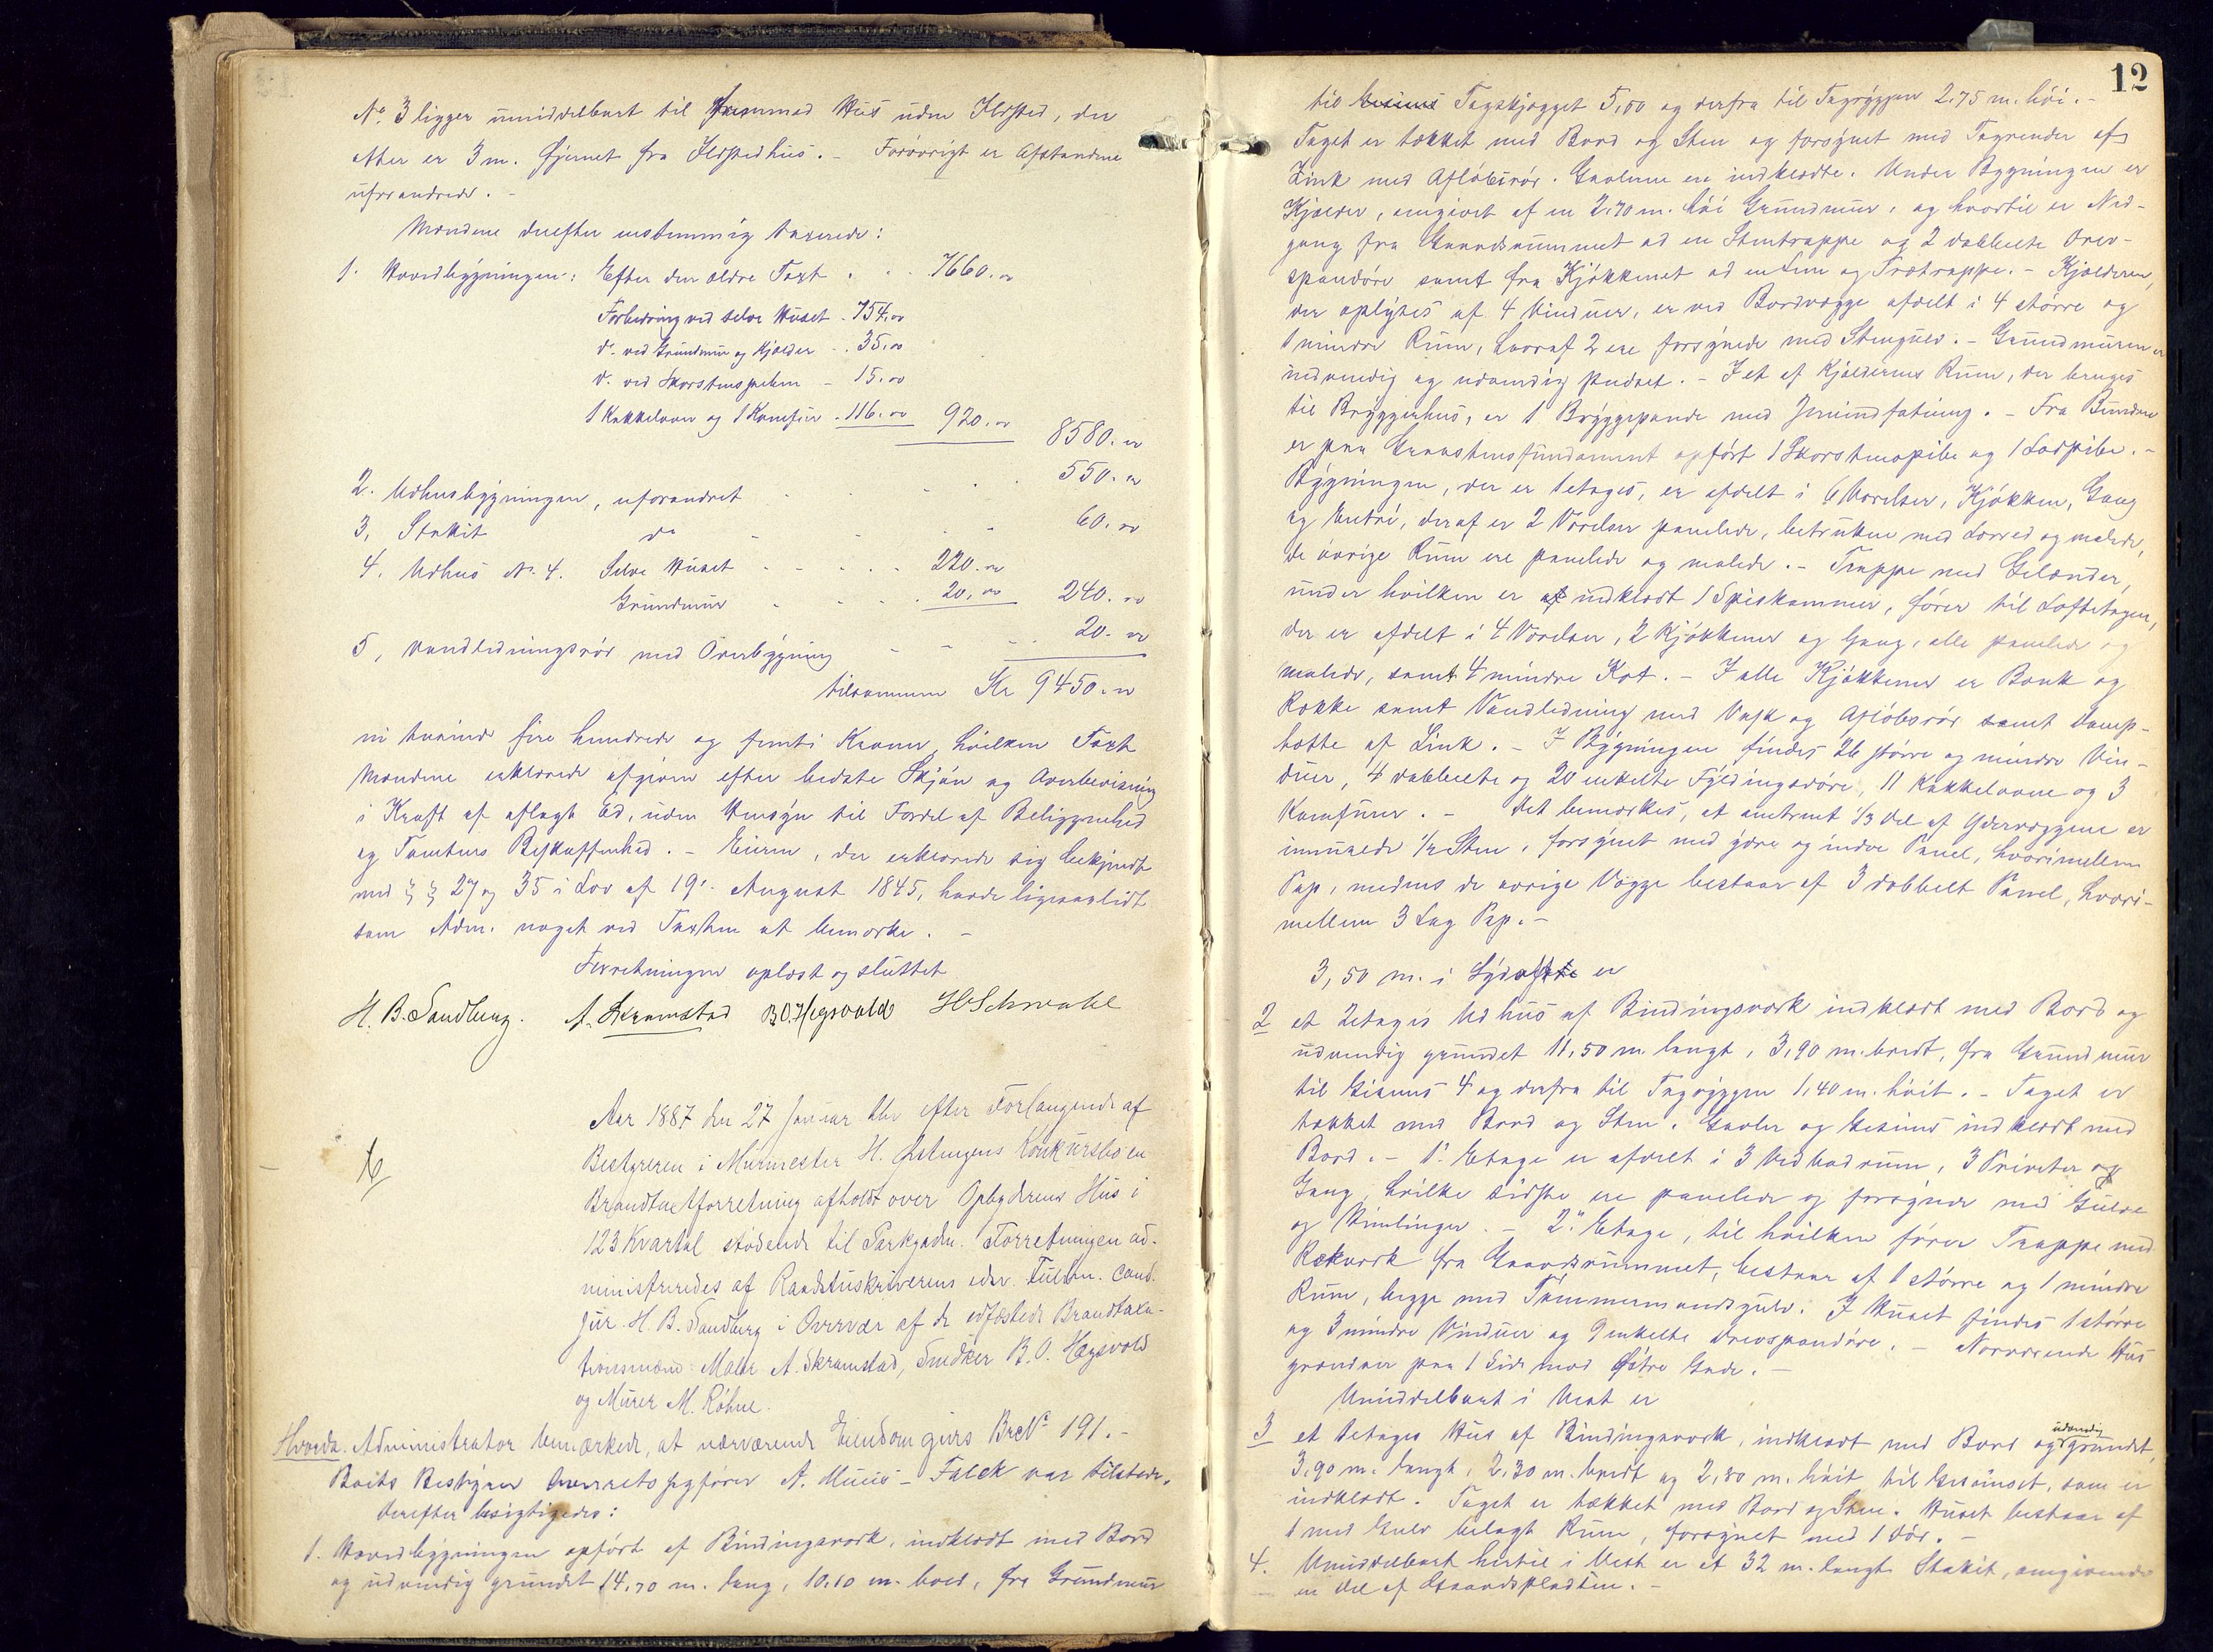 No 3 ligger umiddelbart til fremmed Hus uden Ildsted, der
atter er 3 m. fjernet fra Ildstedhus. - Forøvrigt er Afstandene
uforandrede. -
Mændene derefter enstemmig taxerede:
1. Hovedbygningen: Efter den ældre Taxt . . . 7660.00
Forbedring ved selve Huset - 754.00
do ved Grundmur og Kjælder - 35.00
do ved Skorstenspiben - 15.00
1 Kakkelovn og 1 Komfur - 116.00 920.00 8580.00
2. Udhusbygningen, uforandret - - - 550.00
3, Stakit do - - - 60.00
4. Udhus No 4. Selve Huset - - - 220.00
Grundmur - - - 20.00 240.00
5, Vandledningsrør med Overbygning - - - 20.00
tilsammen Kr 9450.00
ni tusinde fire hundrede og femti Kroner, hvilken Taxt
Mændene erklærede afgiven efter bedste Skjøn og Overbevisning
i Kraft af aflagt Ed, uden Hensyn til Fordel af Beliggenhed
og Tomtens Beskaffenhed. - Eieren, der erklærede sig bekjendt
med § § 27 og 35 i Lov af 19. August 1845, havde ligesaalidt
som Adm. noget ved Taxten at bemærke. -
Forretningen oplæst og sluttet
H. B. Sandberg. A. Skramstad B.O. Hegsvold H Schwabe
Aar 1887 den 27 Januar blev efter Forlangende af
Bestyreren i Murmester H. Konkursbo en
Brandtaxtforretning afholdt over Opbyderens Hus i
123 Kvartal stødende til Parkgaden. Forretningen ad-
ministreredes af Raadstuskriverens edsv. Fuldm. Cand.
jur. H. B. Sandberg i Overvær af de edfæstede Brandtaxa-
tionsmænd: Maler A. Skramstad, Snedker B. O. Hegsvold
og Murer M. Røhne.
Hvorda Administrator bemærkede, at nærværende Eiendom givs Br No 191. -
Boets Bestyrer Overretssagfører A. Falck var tilstede.
Derefter besigtigedes:
1. Hovedbygningen opført af Bindingsværk, indklædt med Bord
og udvendig grundet 14,70 m. lang, 10,10 m. bred, fra Grundmur
12
til Gesims Tagskjægget 5,00 og derfra til Tagryggen 2.75 m. høi. -
Taget er tækket med Bord og Sten og forsynet med Tagrender af
Zink med Afløbsrør. Gavlene ere indklædte. Under Bygningen er
Kjælder, omgivet af en 2,70 m. høi Grundmur, og hvortil er Ned-
gang fra Gaardsrummet ad en Stentrappe og 2 dobbelte Drev-
spandøre samt fra Kjøkkenet ad en Lem og Trætrappe. - Kjælderen,
der oplyses af 4 Vinduer, er ved Bordvægge afdelt i 4 større og
1 mindre Rum, hvoraf 2 ere forsynede med Stengulv. - Grundmuren er
indvendig og udvendig pudset. - I et af Kjælderens Rum, der bruges
til Bryggerhus, er 1 Bryggepande med Jernindfatning. - Fra Bunden
er paa Graastensfundament opført 1 Skorstenspibe og 1 Lodpibe. -
Bygningen, der er 1 etages, er afdelt i 6 Værelser, Kjøkken, Gang
og Entré, deraf er 2 Værelser panelede, betrukne med Lærred og malede,
de øvrige Rum ere panelede og malede. - Trappe med Gelænder,
under hvilken er af indklædt 1 Spiskammer, fører til Loftetagen,
der er afdelt i 4 Værelser, 2 Kjøkkener og Gang, alle panelede og
malede, samt 4 mindre Kot. - I alle Kjøkkener er Bænk og
Række samt Vandledning med Vask og Afløbsrør samt Damp-
hætte af Zink. - I Bygningen findes 26 større og mindre Vin-
duer, 4 dobbelte og 20 enkelte Fyldingsdøre, 11 Kakkelovne og 3
Komfurer. - Det bemærkes, at omtrent 1/3 Del af Ydervæggene er
inmurede 1/2 Sten, forsynet med ydre og indre Panel, hvorimellem
Pap, medens de øvrige Vægge bestaar af 3 dobbelt Panel, hvori-
mellem 3 Lag Pap. -
3,50 m. i Syd er
2 et 2etages Udhus af Bindingsværk indklædt med Bord og
udvendig grundet 11,50 m. langt, 3,90 m. bredt, fra Grundmur
til Gesims 4 og derfra til Tagryggen 1,40 m. høit. - Taget er
tækket med Bord og Sten. Gavler og Gesims indklædt med
Bord. - 1. Etage er afdelt i 3 Vedbodrum, 3 Priveter og
Gang, hvilke sidste ere panelede og forsynede med Gulve
og Himlinger. - 2. Etage, til hvilken fører Trappe med
Rækværk fra Gaardsrummet, bestaar af 1 større og 1 mindre
Rum, begge med Tømmermandsgulv. I Huset findes 1 større
og 3 mindre Vinduer og 9 enkelte Drevspandøre. - Nærværende Hus
grændser paa 1 Side mod Østre Gade. -
Umiddelbart i Vest er
3 et 1etages Hus af Bindingsværk, indklædt med Bord og udvendig grundet,
3,90 m. langt, 2,30 m. bredt og 2,80 m. høit til Gesimset, som er
indklædt. Taget er tækket med Bord og Sten. Huset bestaar af
1 med Gulv belagt Rum, forsynet med 1 Dør. -
4. Umiddelbart hertil i Vest er et 32 m. langt Stakit, omgivende
en Del af Gaardspladsen. -